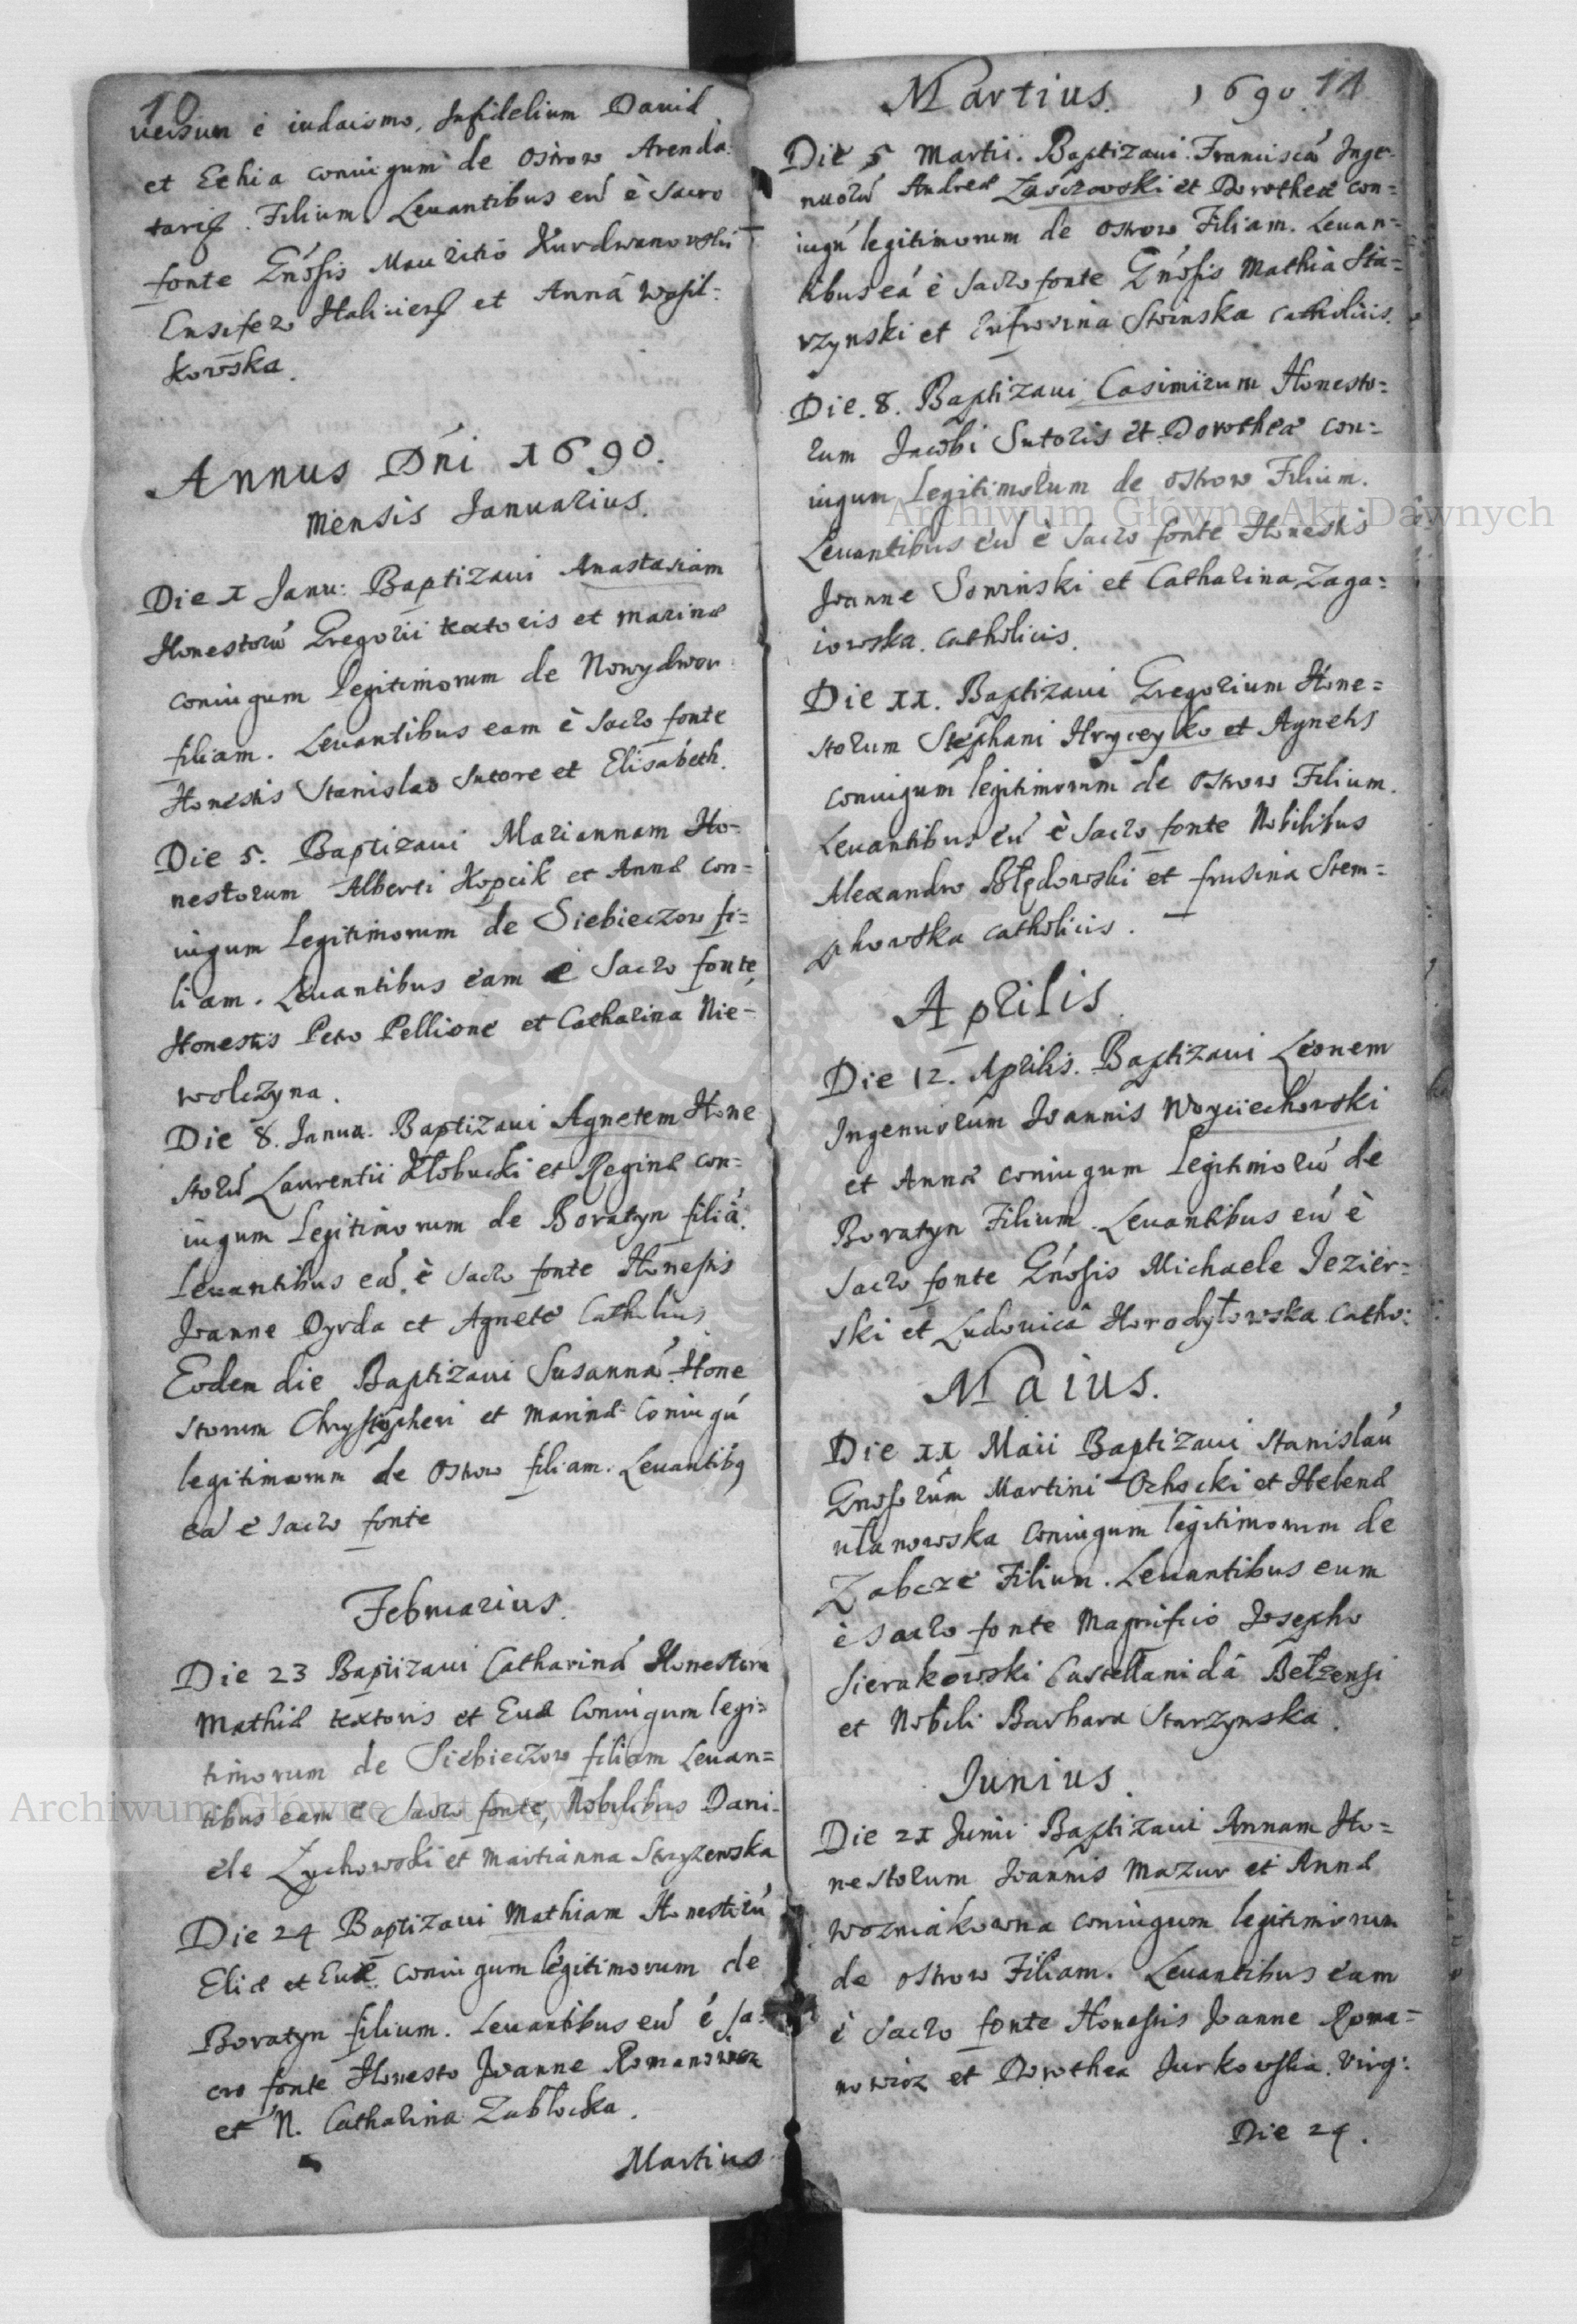 10
uersum è iudaismo, Infidelium Dauid
et Echia coniugum de Ostrow Arenda:
tariȩ. Filium. Leuantibus eū è Sacro
fonte Gńosis Mauritio Kurdwanowski
Ensifero Halicien̄ et Annâ Wasil:
kowska.
Annus Dńi 1690.
Mensis Ianuarius.
Die 1 Janu: Baptizaui Anastasiam
Honestorū Gregorii textoris et Marinæ
coniugum legitimorum de Nowydwor
filiam. Leuantibus eam è Sacro fonte
Honestis Stanislao Sutore et Elisabeth.
Die 5. Baptizaui Mariannam Ho=
nestorum Alberti Kopcik et Annæ con=
iugum Legitimorum de Siebieczow fi=
liam. Leuantibus eam è Sacro fonte
Honestis Petro Pellione et Catharina Nie=
wolczyna.
Die 8. Janua. Baptizaui Agnetem Hone
storū Laurentii Kłobucki et Reginæ con=
iugum Legitimorum de Boratyn filiā.
Leuantibus eā è Sacro fonte Honestis
Joanne Dyrda et Agnete Catholicis
Eodem die Baptizaui Susannā Hone
storum Chrystopheri et Marinæ Coniugū
legitimorum de Ostrow filiam. Leuantibq
eā è Sacro fonte
Februarius.
Die 23 Baptizaui Catharinā Honestorū
Mathiæ textoris et Euæ Coniugum legi=
timorum de Siebieczow filiam Leuan=
tibus eam è Sacro fonte, Nobilibus Dani=
ele Zuchowski et Martianna Stryzewska
Die 24 Baptizaui Mathiam Honestorū
Eliæ et Euæ coniugum legitimorum de
Boratyn filium. Leuantibus eū é Sa=
cro fonte Honesto Joanne Romanowicz
et N. Catharina Zabłocka.
Martius
Martius. 1690. 11
Die 5 Martii. Baptizaui Franciscā Inge=
nuorū Andreæ Zasczowski et Dorotheæ con=
iugū legitimorum de Ostrow Filiam. Leuan=
tibus eā è Sacro fonte Gńosis Mathia Sta=
rzynski et Eufrosina Stoinska catholicis.
Die. 8. Baptizaui Casimirum Honesto=
rum Jacobi Sutoris et Dorotheæ con=
iugum Legitimorum de Ostrow Filium.
Leuantibus eū è Sacro fonte Honestis
Joanne Sowinski et Catharina Zaga=
iowska. Catholicis.
Die 11. Baptizaui Gregorium Hone=
storum Stephani Hryceyko et Agnetis
coniugum legitimorum de Ostrow Filium.
Leuantibus eū è Sacro fonte Nobilibus
Alexandro Błędowski et frusina Stem=
pkowska catholicis.
Aprilis.
Die 12. Aprilis. Baptizaui Leonem
Ingenuorum Joannis Woyciechowski
et Annæ coniugum Legitimorū de
Boratyn Filium. Leuantibus eū è
Sacro fonte Gńosis Michaele Jezier=
ski et Ludouicâ Horodyłowska Catho:
Maius.
Die 11 Maii Baptizaui Stanislaū
Gnosorum Martini Ochocki et Helenæ
ułanowska Coniugum legitimorum de
Zabcze Filium. Leuantibus eum
è Sacro fonte Magnifico Josepho
Sierakowski Castellanidâ Bełzensi
et Nobili Barbara Starzynska.
Junius.
Die 21 Junii Baptizaui Annam Ho=
nestorum Joannis Mazur et Annæ
Wozniakowna coniugum legitimorum
de Ostrow Filiam. Leuantibus eam
è Sacro fonte Honestis Joanne Roma=
nowicz et Dorothea Jurkowska. Virg:
Die 24.
Archiwum Główne Akt Dawnych
Archiwum Główne Akt Dawnych